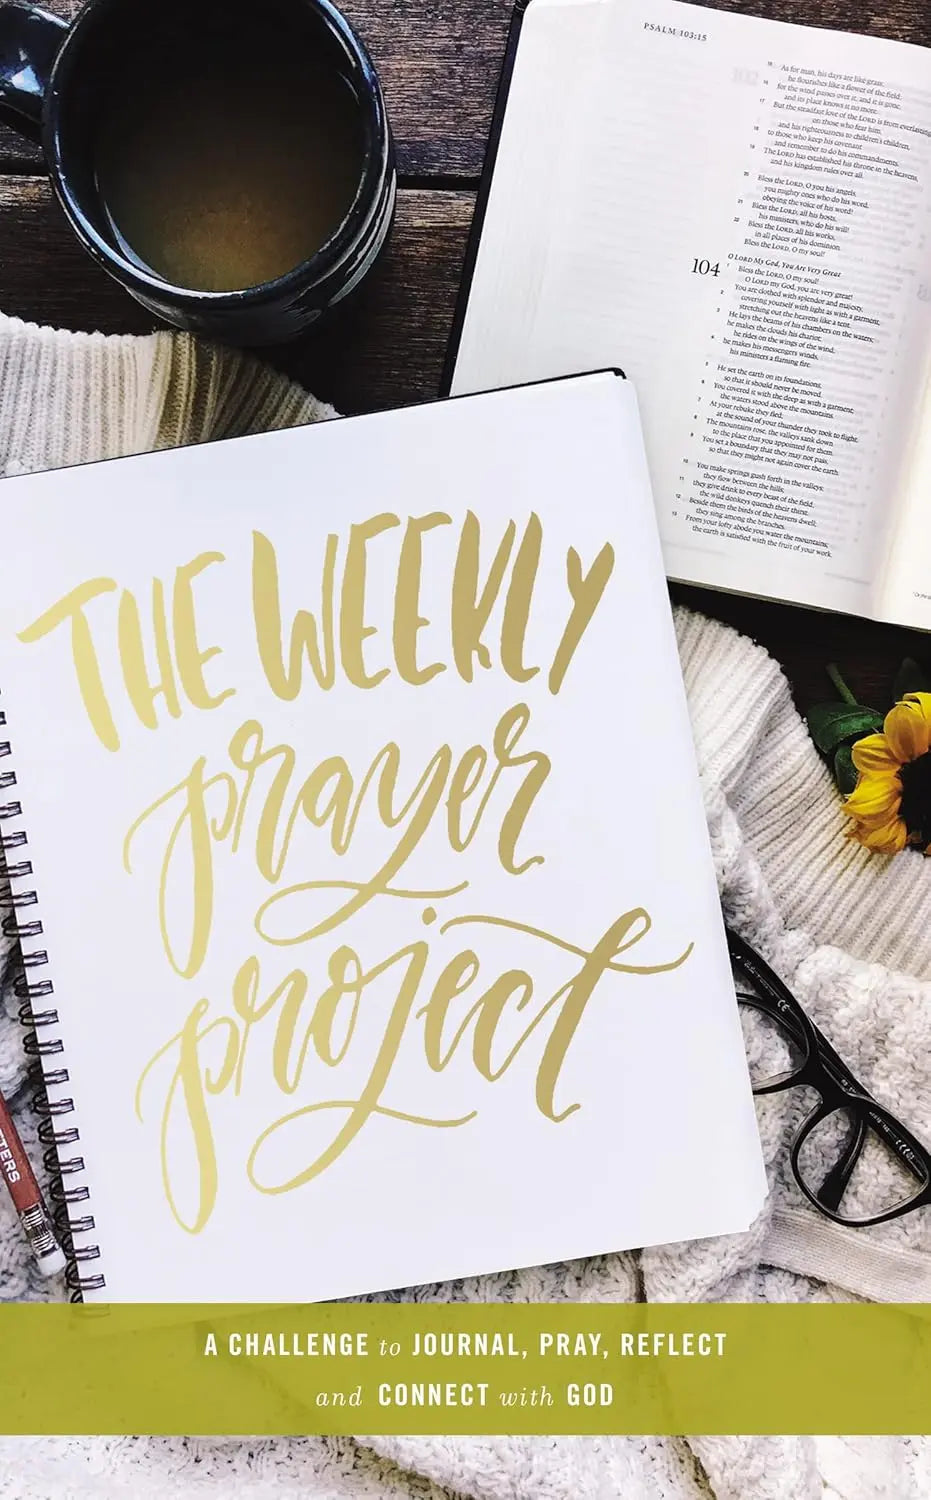 PSALM 103:15
15 As for man, his days are like grass;
he flourishes like a flower of the field;
16 for the wind passes over it, and it is gone,
and its place knows it no more.
17 But the steadfast love of the LORD is from everlasting
on those who fear him,
and his righteousness to children's children,
18 to those who keep his covenant
and remember to do his commandments.
19 The LORD has established his throne in the heavens,
and his kingdom rules over all.
20 Bless the LORD, O you his angels,
you mighty ones who do his word,
obeying the voice of his word!
21 Bless the LORD, all his hosts,
his ministers, who do his will!
22 Bless the LORD, all his works,
in all places of his dominion.
Bless the LORD, O my soul!
O LORD My God, You Are Very Great
104 1 Bless the LORD, O my soul!
O LORD my God, you are very great!
You are clothed with splendor and majesty,
2 covering yourself with light as with a garment,
stretching out the heavens like a tent.
3 He lays the beams of his chambers on the waters;
he makes the clouds his chariot;
he rides on the wings of the wind;
4 he makes his messengers winds,
his ministers a flaming fire.
5 He set the earth on its foundations,
so that it should never be moved.
6 You covered it with the deep as with a garment;
the waters stood above the mountains.
7 At your rebuke they fled;
at the sound of your thunder they took to flight.
8 The mountains rose, the valleys sank down
to the place that you appointed for them.
9 You set a boundary that they may not pass,
so that they might not again cover the earth.
10 You make springs gush forth in the valleys;
they flow between the hills;
11 they give drink to every beast of the field;
the wild donkeys quench their thirst.
12 Beside them the birds of the heavens dwell;
they sing among the branches.
13 From your lofty abode you water the mountains;
the earth is satisfied with the fruit of your work.
THE WEEKLY
prayer
project
TERS
A CHALLENGE to JOURNAL, PRAY, REFLECT
and CONNECT with GOD